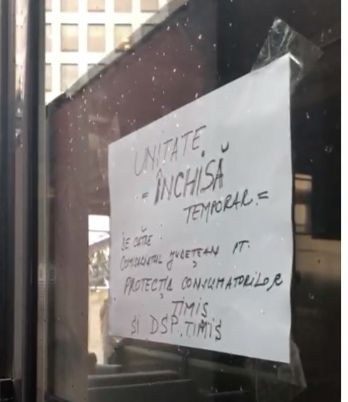 UNITATE
= ÎNCHISĂ
TEMPORAR =
DE CĂTRE
COMISARIATUL JUDEȚEAN PT.
PROTECȚIA CONSUMATORILOR
TIMIȘ
ȘI DSP. TIMIȘ